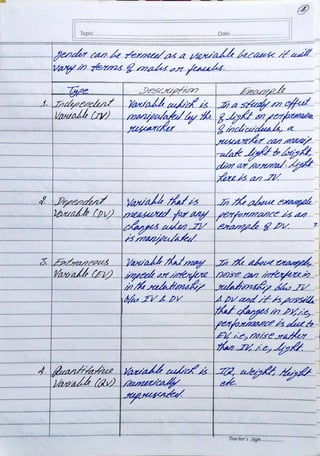 2
Topic
Date
gender can be termed as a variable because it will
vary in terms of males or females.
Type Description Example
1. Independent Variable which is In a study on effect
Variable (IV) manipulated by the of light on performance
researcher of individuals, a
researcher can manip
-ulate light to bright
dim or normal. Light
here is an IV.
2. Dependent Variable that is In the above example
Variable (DV) measured for any performance is an
changes when IV example of DV.
is manipulated.
3. Extraneous Variable that may In the above example,
Variable (EV) impede or interfere noise can interfere in
in the relationship relationship b/w IV
b/w IV & DV & DV and it is possible
that changes in DV, i.e,
performance is due to
EV, i.e, noise rather
than IV, i.e, light.
4. Quantitative Variable which is IQ, weight, Height
Variable (QV) numerically etc.
represented.
Teacher's Sign